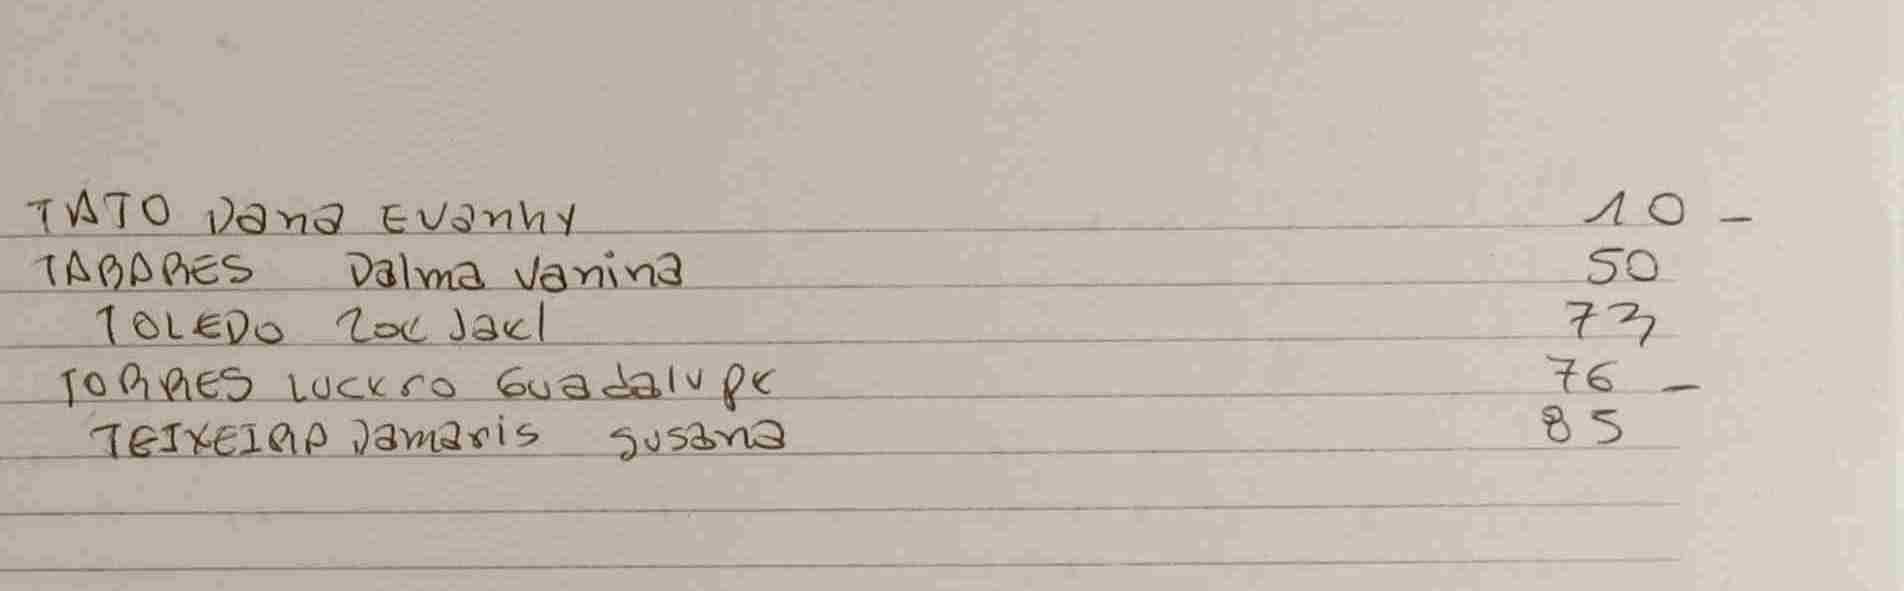 TATO Dana Evanhy 10 -
TABARES Dalma Vanina 50
TOLEDO Zoe Jael 73
TORRES Lucero Guadalupe 76 -
TEIXEIRA Damaris Susana 85